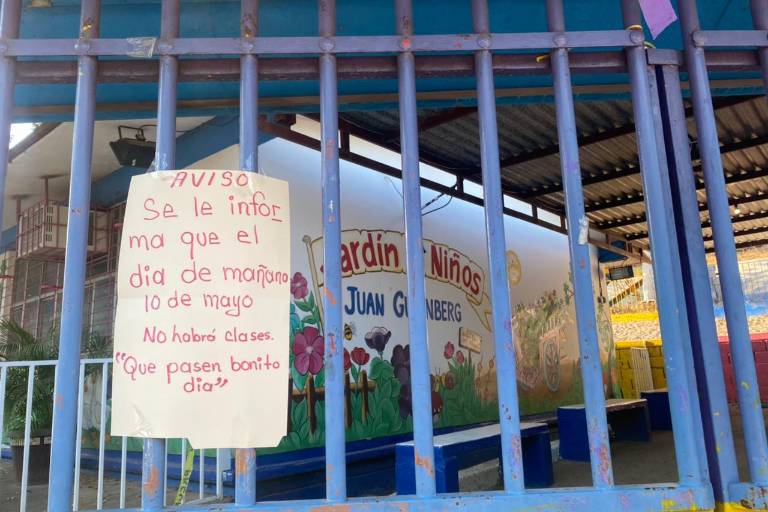 AVISO
Se le infor
ma que el
dia de mañana
10 de mayo
No habrá clases.
"Que pasen bonito
dia"
Jardín Niños
JUAN GU NBERG